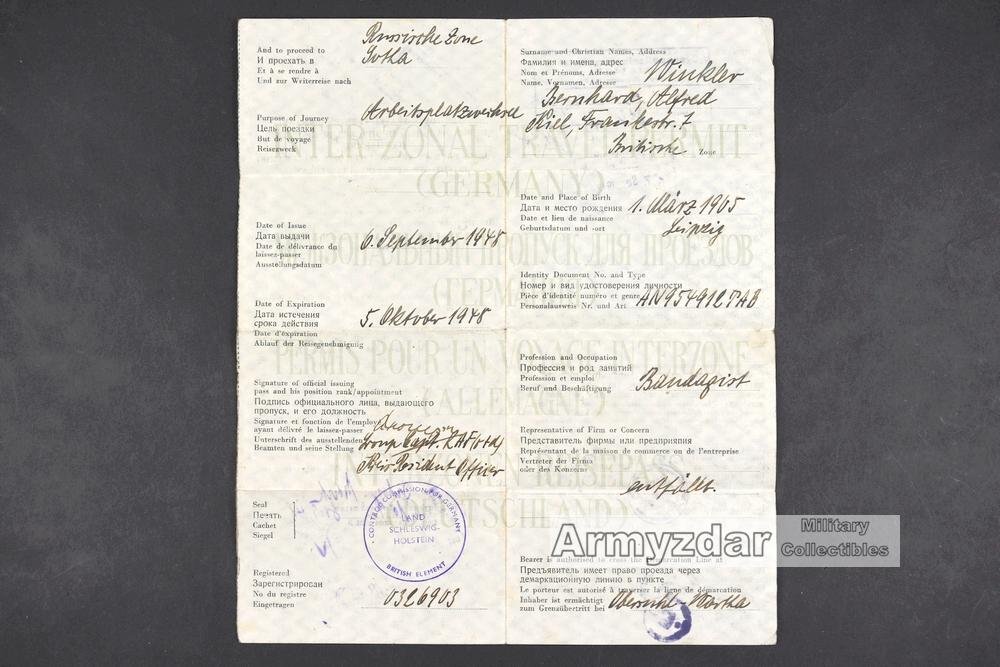 And to proceed to
И проехать в
Et à se rendre à
Und zur Weiterreise nach
Russische Zone
Gotha
Purpose of Journey
Цель поездки
But de voyage
Reisezweck
Arbeitsplatzwechsel
Date of Issue
Дата выдачи
Date de délivrance du
laissez-passer
Ausstellungsdatum
6. September 1948
Date of Expiration
Дата истечения
срока действия
Date d'expiration
Ablauf der Reisegenehmigung
5. Oktober 1948
Signature of official issuing
pass and his position rank/appointment
Подпись официального лица, выдающего
пропуск, и его должность
Signature et fonction de l'employé
ayant délivré le laissez-passer
Unterschrift des ausstellenden
Beamten und seine Stellung
Group Capt. RAF (rtd)
Kreis Resident Officer
Seal
Печать
Cachet
Siegel
CONTROL COMMISSION FOR GERMANY
LAND
SCHLESWIG-
HOLSTEIN
BRITISH ELEMENT
Registered
Зарегистрирован
No du registre
Eingetragen
0326903
Surname and Christian Names, Address
Фамилия и имена, адрес
Nom et Prénoms, Adresse
Name, Vornamen, Adresse
Winkler
Bernhard, Alfred
Kiel, Frankestr. 7
Britische Zone
Date and Place of Birth
Дата и место рождения
Date et lieu de naissance
Geburtsdatum und -ort
1. März 1905
Leipzig
Identity Document No. and Type
Номер и вид удостоверения личности
Pièce d'identité numéro et genre
Personalausweis Nr. und Art
AN954912TAB
Profession and Occupation
Профессия и род занятий
Profession et emploi
Beruf und Beschäftigung
Bandagist
Representative of Firm or Concern
Представитель фирмы или предприятия
Représentant de la maison de commerce ou de l'entreprise
Vertreter der Firma
oder des Konzerns
entfällt.
Bearer is authorised to cross the Demarcation Line at
Предъявитель имеет право проезда через
демаркационную линию в пункте
Le porteur est autorisé à traverser la ligne de démarcation
Inhaber ist ermächtigt
zum Grenzübertritt bei
INTER-ZONAL TRAVEL PERMIT
(GERMANY)
МЕЖЗОНАЛЬНЫЙ ПРОПУСК ДЛЯ ПРОЕЗДОВ
(ГЕРМАНИЯ)
PERMIS POUR UN VOYAGE INTERZONE
(ALLEMAGNE)
Armyzdar
Military
Collectibles